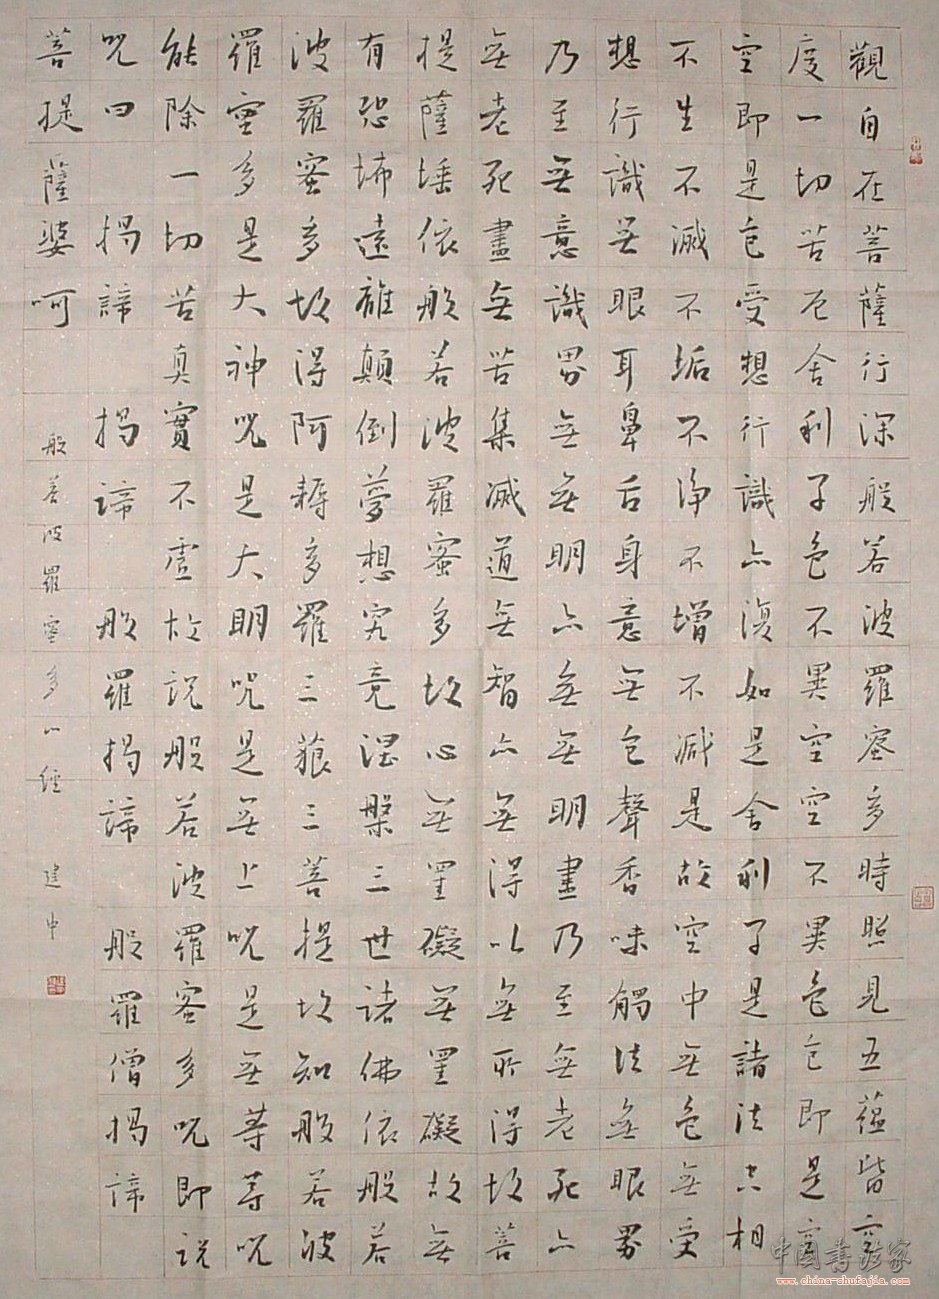 觀自在菩薩行深般若波羅蜜多時照見五蘊皆空
度一切苦厄舍利子色不異空空不異色色即是空
空即是色受想行識亦復如是舍利子是諸法空相
不生不滅不垢不淨不增不減是故空中無色無受
想行識無眼耳鼻舌身意無色聲香味觸法無眼界
乃至無意識界無無明亦無無明盡乃至無老死亦
無老死盡無苦集滅道無智亦無得以無所得故菩
提薩埵依般若波羅蜜多故心無罣礙無罣礙故無
有恐怖遠離顛倒夢想究竟涅槃三世諸佛依般若
波羅蜜多故得阿耨多羅三藐三菩提故知般若波
羅蜜多是大神咒是大明咒是無上咒是無等等咒
能除一切苦真實不虛故說般若波羅蜜多咒即說
咒曰 揭諦 揭諦 般羅揭諦 般羅僧揭諦
菩提薩婆呵
般若波羅蜜多心經 建中
中國書法家
www.china-shufajia.com